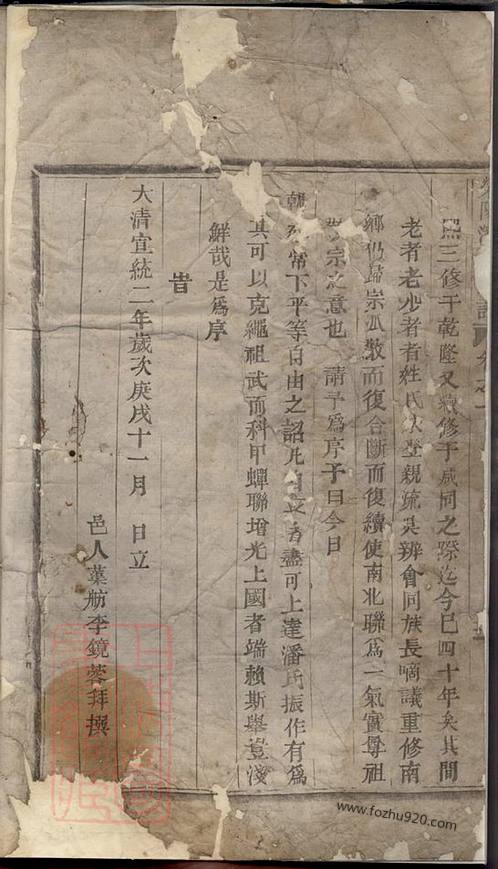 熙三修于乾隆又續修于咸同之際迄今已四十年矣其間
老者老少者者姓氏登親疏莫辨會同族長嘀議重修南
鄉仍歸宗派散而復合斷而復續使南北聯為一氣實尊祖
宗之意也 請予爲序予曰今日
朝 常下平等自由之詔凡自立者盡可上達潘氏振作有爲
其可以克繩祖武而科甲蟬聯增光上國者端賴斯舉豈淺
鮮哉是爲序
旹
大清宣統二年歲次庚戌十一月 日立
邑人葉舫李鏡蓉拜撰
www.fozhu920.com